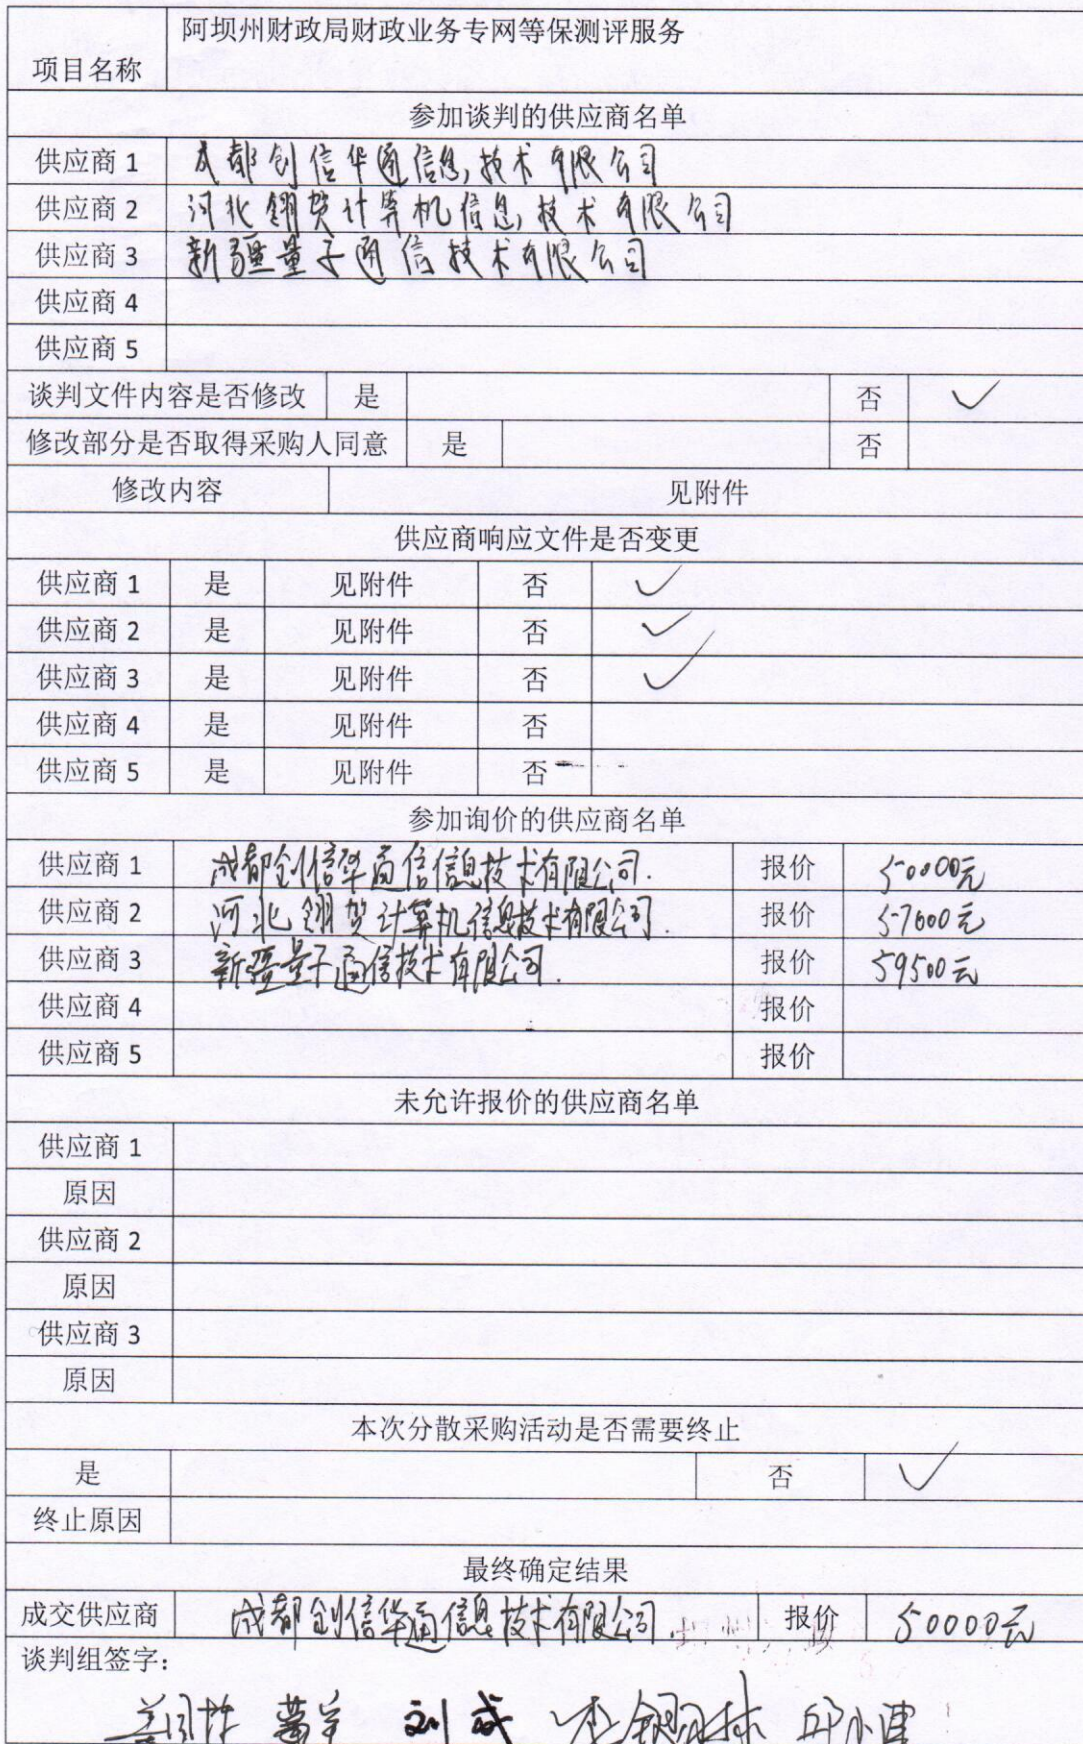 阿坝州财政局财政业务专网等保测评服务
项目名称
参加谈判的供应商名单
供应商 1 成都创信华通信息技术有限公司
供应商 2 河北翎贺计算机信息技术有限公司
供应商 3 新疆量子通信技术有限公司
供应商 4
供应商 5
谈判文件内容是否修改 是 否 ✓
修改部分是否取得采购人同意 是 否
修改内容 见附件
供应商响应文件是否变更
供应商 1 是 见附件 否 ✓
供应商 2 是 见附件 否 ✓
供应商 3 是 见附件 否 ✓
供应商 4 是 见附件 否
供应商 5 是 见附件 否
参加询价的供应商名单
供应商 1 成都创信华通信信息技术有限公司. 报价 50000元
供应商 2 河北翎贺计算机信息技术有限公司. 报价 57000元
供应商 3 新疆量子通信技术有限公司. 报价 59500元
供应商 4 报价
供应商 5 报价
未允许报价的供应商名单
供应商 1
原因
供应商 2
原因
供应商 3
原因
本次分散采购活动是否需要终止
是 否 ✓
终止原因
最终确定结果
成交供应商 成都创信华通信息技术有限公司. 报价 50000元
谈判组签字:
刘成